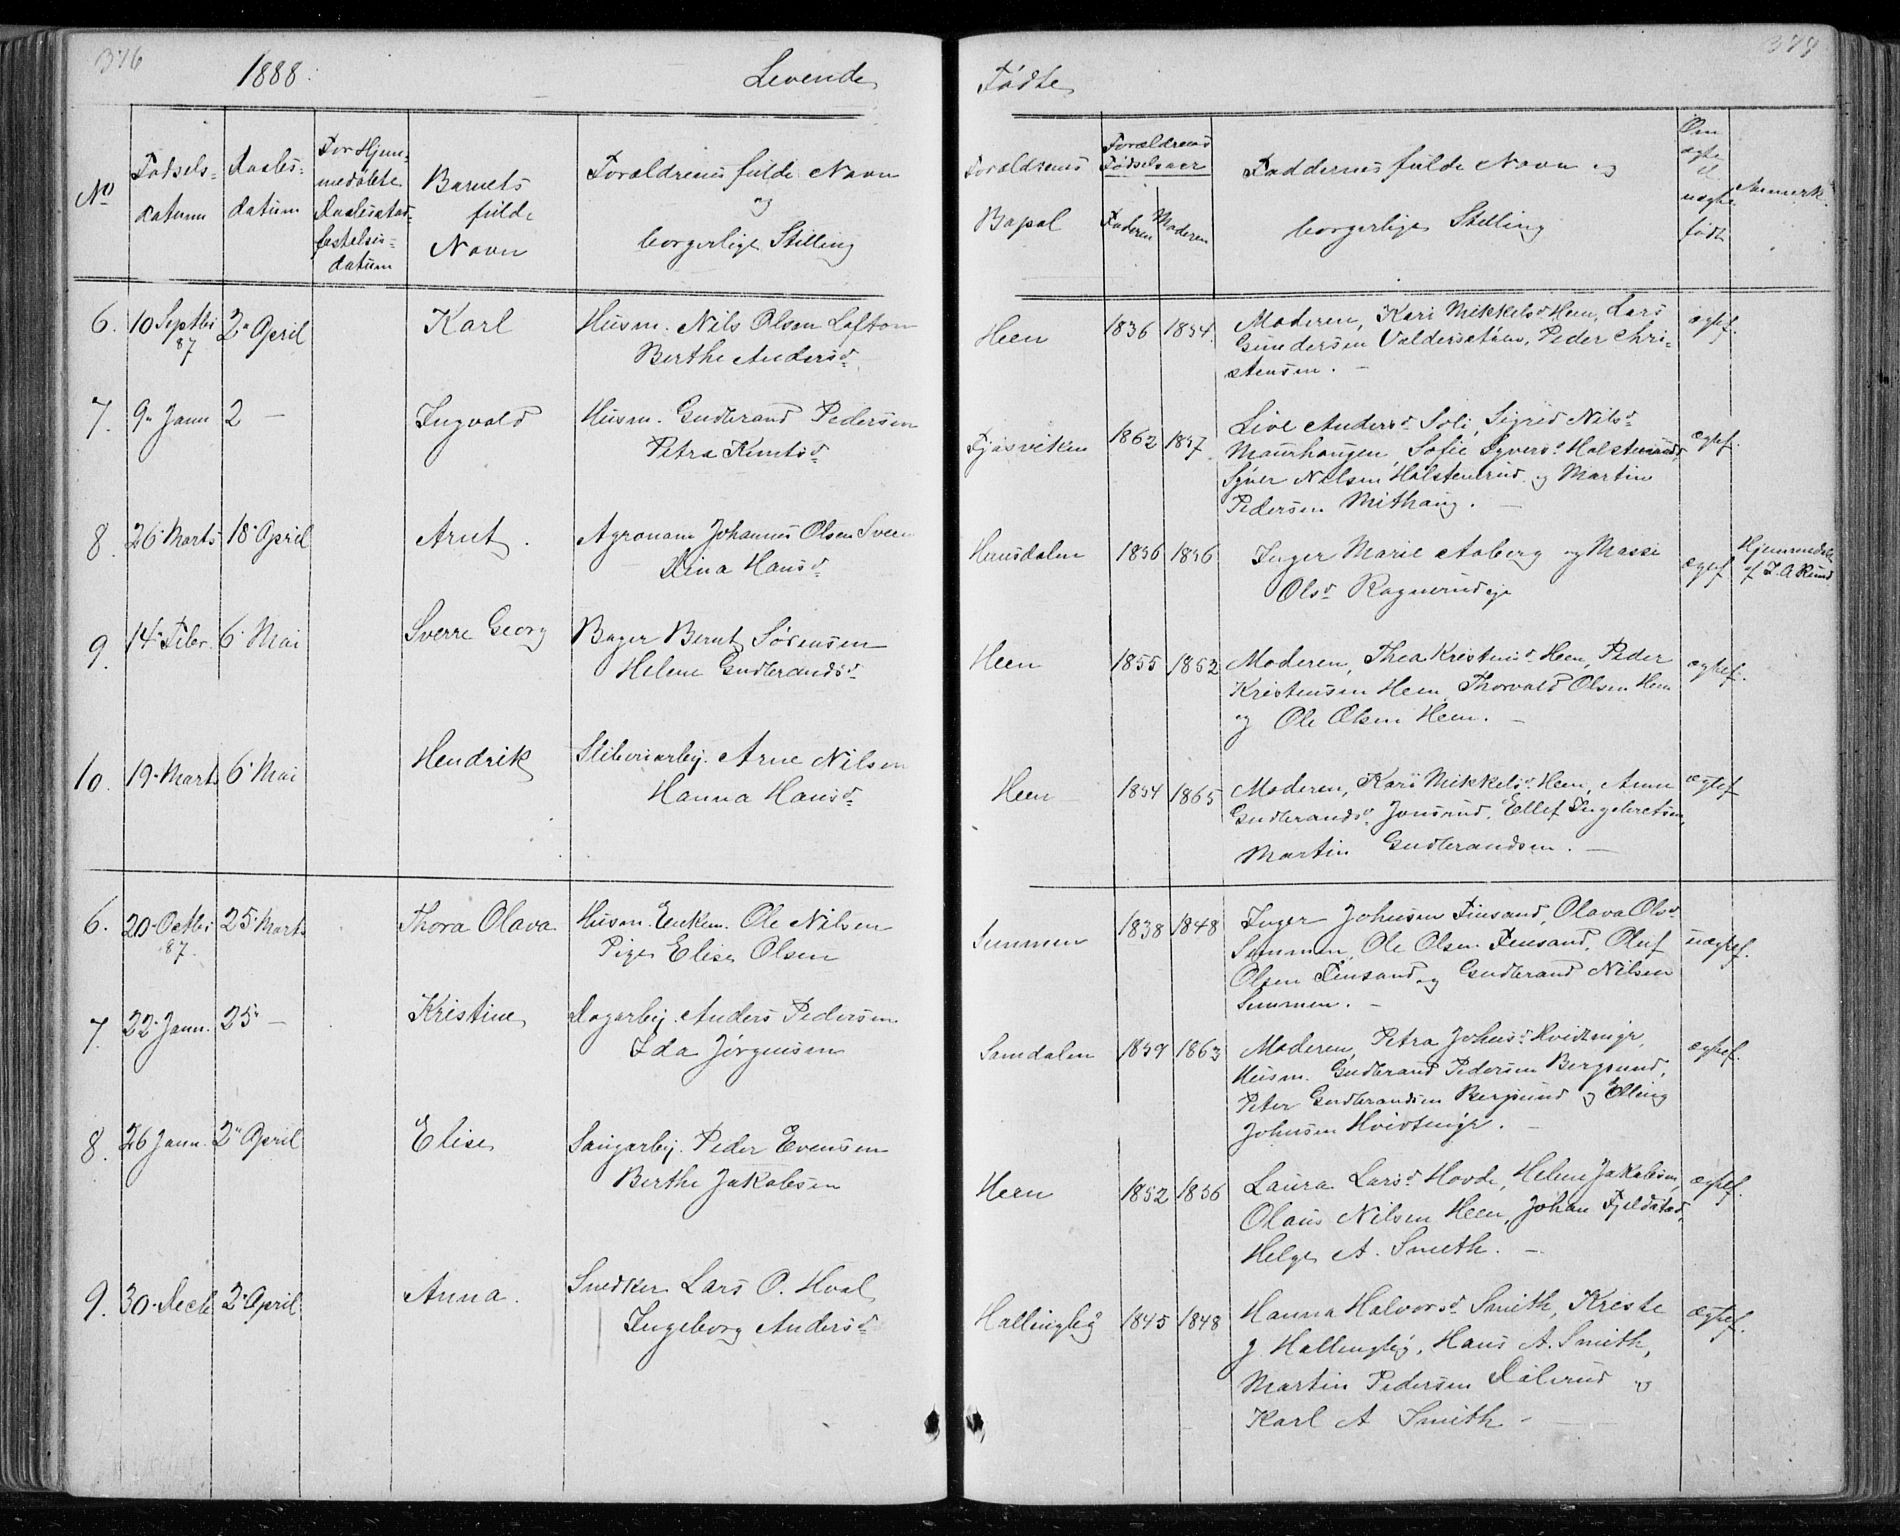 376
1888.
Levende
No
Fødsels-
datum
Daabs-
datum
For Hjem-
medøbte
Daabsstad-
festelses-
datum
Barnets
fulde
Navn
Forældrenes fulde Navn
og
borgerlige Stilling
6. 10 Septbr 87 2. April Karl Husm. Nils Olsen
Berthe Andersd.
7. 9. Janu 2 — Ingvald Husm. Gudbrand Pedersen
Petra Knutsd.
8. 26. Marts 18. April Arnt. Agronom Johannes Olsen Sveen
Dina Hansd.
9. 14. Febr. 6. Mai Sverre Georg Bager Bernt Sørensen
Helene Gudbrandsd.
10. 19. Marts 6. Mai Hendrik Sliberiarbej. Arne Nilsen
Hanna Hansd.
6. 20. Octbr 87. 25. Marts Thora Olava Husm. Enkem. Ole Nilsen
Pige Elise Olsen
7. 22. Janu. 25. — Kristine Dagarbej. Anders Pedersen
Ida Jørgensen
8. 26 Janu. 2. April Elise Saugarbej. Peder Evensen
Berthe Jakobsen
9. 30. Decb 2. April Anna. Snedker Lars O. Hval
Ingeborg Andersd.
Fødte
Forældrenes
Bopæl
Forældrenes
Fødselsaar
Faderen Moderen
Faddernes fulde Navn og
borgerlige Stilling
Om
ægte
el.
uægte
født
Anmerk.
Heen 1836 1834. Moderen, Kari Mikkelsd. Heen, Lars ægtef.
Gundersen Valdersætren, Peder Chri-
stensen. —
1862 1857. Live Andersd. Soli, Sigrid Nilsd. ægtef.
Maurhaugen, Sofie Syversd. Holstenrud,
Syver Nilsen Holstenrud og Martin
Pedersen Mithaug. —
1856 1856 Inger Marie Aaberg og Massi ægtef Hjemmedøbt
Olsd. Ragnerudeje af
Heen 1855 1862 Moderen, Thea Kristensd. Heen, Peder ægtef.
Kristensen Heen, Thorvald Olsen Heen
og Ole Olsen Heen. —
Heen 1854 1865 Moderen, Kari Mikkelsd. Heen, Anne ægtef
Gudbrandsd. Jonsrud, Ellef Ingebretsen,
Martin Gudbrandsen. —
Semmen 1838 1848 Inger Johnsen Finsand, Olava Olsd. uægtef.
Semmen, Ole Olsen Finsand, Oluf
Olsen Finsand og Gudbrand Nilsen
Semmen. —
Somdalen 1859 1863 Moderen, Petra Johnsd. Hvidtengr, ægtef.
Husm. Gudbrand Pedersen Bergsund,
Peter Gudbrandsen Bergsund og Elling
Johnsen Hvidtengr. —
Heen 1852 1856 Laura Larsd. Hovde, Helene Jakobsen, ægtef.
Olaus Nilsen Heen, Johan Fjeldstad,
Helge A. Smeth. —
Hallingby 1845 1848 Hanna Halvorsd. Smith, Kriste ægtef.
J. Hallingby, Hans A. Smith,
Martin Pedersen og
Karl A Smith —